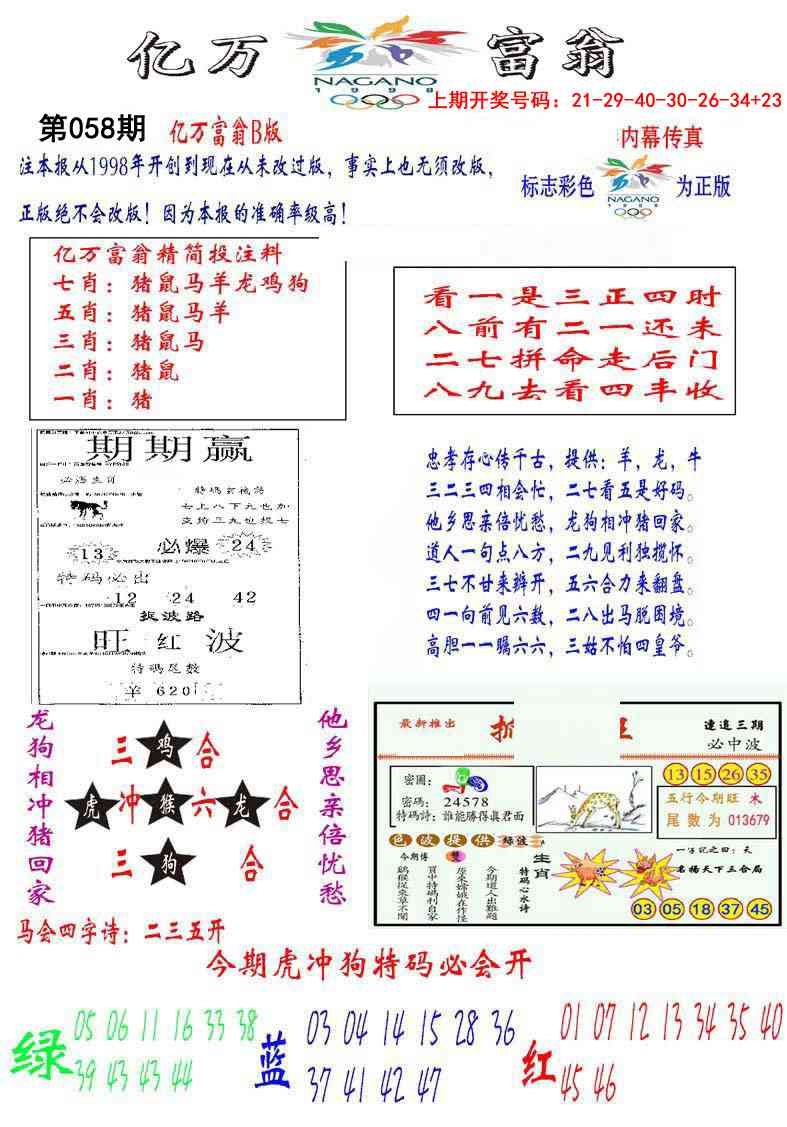 亿万 富翁
NAGANO
1998
上期开奖号码：21-29-40-30-26-34+23
第058期 亿万富翁B版
内幕传真
注本报从1998年开创到现在从未改过版，事实上也无须改版，
正版绝不会改版！因为本报的准确率级高！
标志彩色 NAGANO 1998 为正版
亿万富翁精简投注料
七肖：猪鼠马羊龙鸡狗
五肖：猪鼠马羊
三肖：猪鼠马
二肖：猪鼠
一肖：猪
看一是三正四时
八前有二一还未
二七拼命走后门
八九去看四丰收
期期赢
七上八下九也加
13 必爆 24
特码必出
12 24 42
捉波路
旺 红 波
特碼尾数
羊 620
忠孝存心传千古，提供：羊，龙，牛
三二三四相会忙，二七看五是好码。
他乡思亲倍忧愁，龙狗相冲猪回家。
道人一句点八方，二九见利独揽怀。
三七不甘来辨开，五六合力来翻盘。
四一向前见六数，二八出马脱困境。
高胆一一瞩六六，三姑不怕四皇爷。
龙狗相冲猪回家
三 鸡 合
虎 冲 猴 六 龙 合
三 狗 合
他乡思亲倍忧愁
马会四字诗：二三五开
最新推出
連追三期
必中波
密圖：
密碼：24578
特碼詩：誰能勝得真君面
13 15 26 35
五行今期旺 木
尾數为 013679
色波提供 綠波
今期博 雙
生肖
特碼心水诗
今期道人出難題
一字记之曰：天
名扬天下三合局
03 05 18 37 45
今期虎冲狗特码必会开
绿 05 06 11 16 33 38
39 43 43 44
蓝 03 04 14 15 28 36
37 41 42 47
红 01 07 12 13 34 35 40
45 46